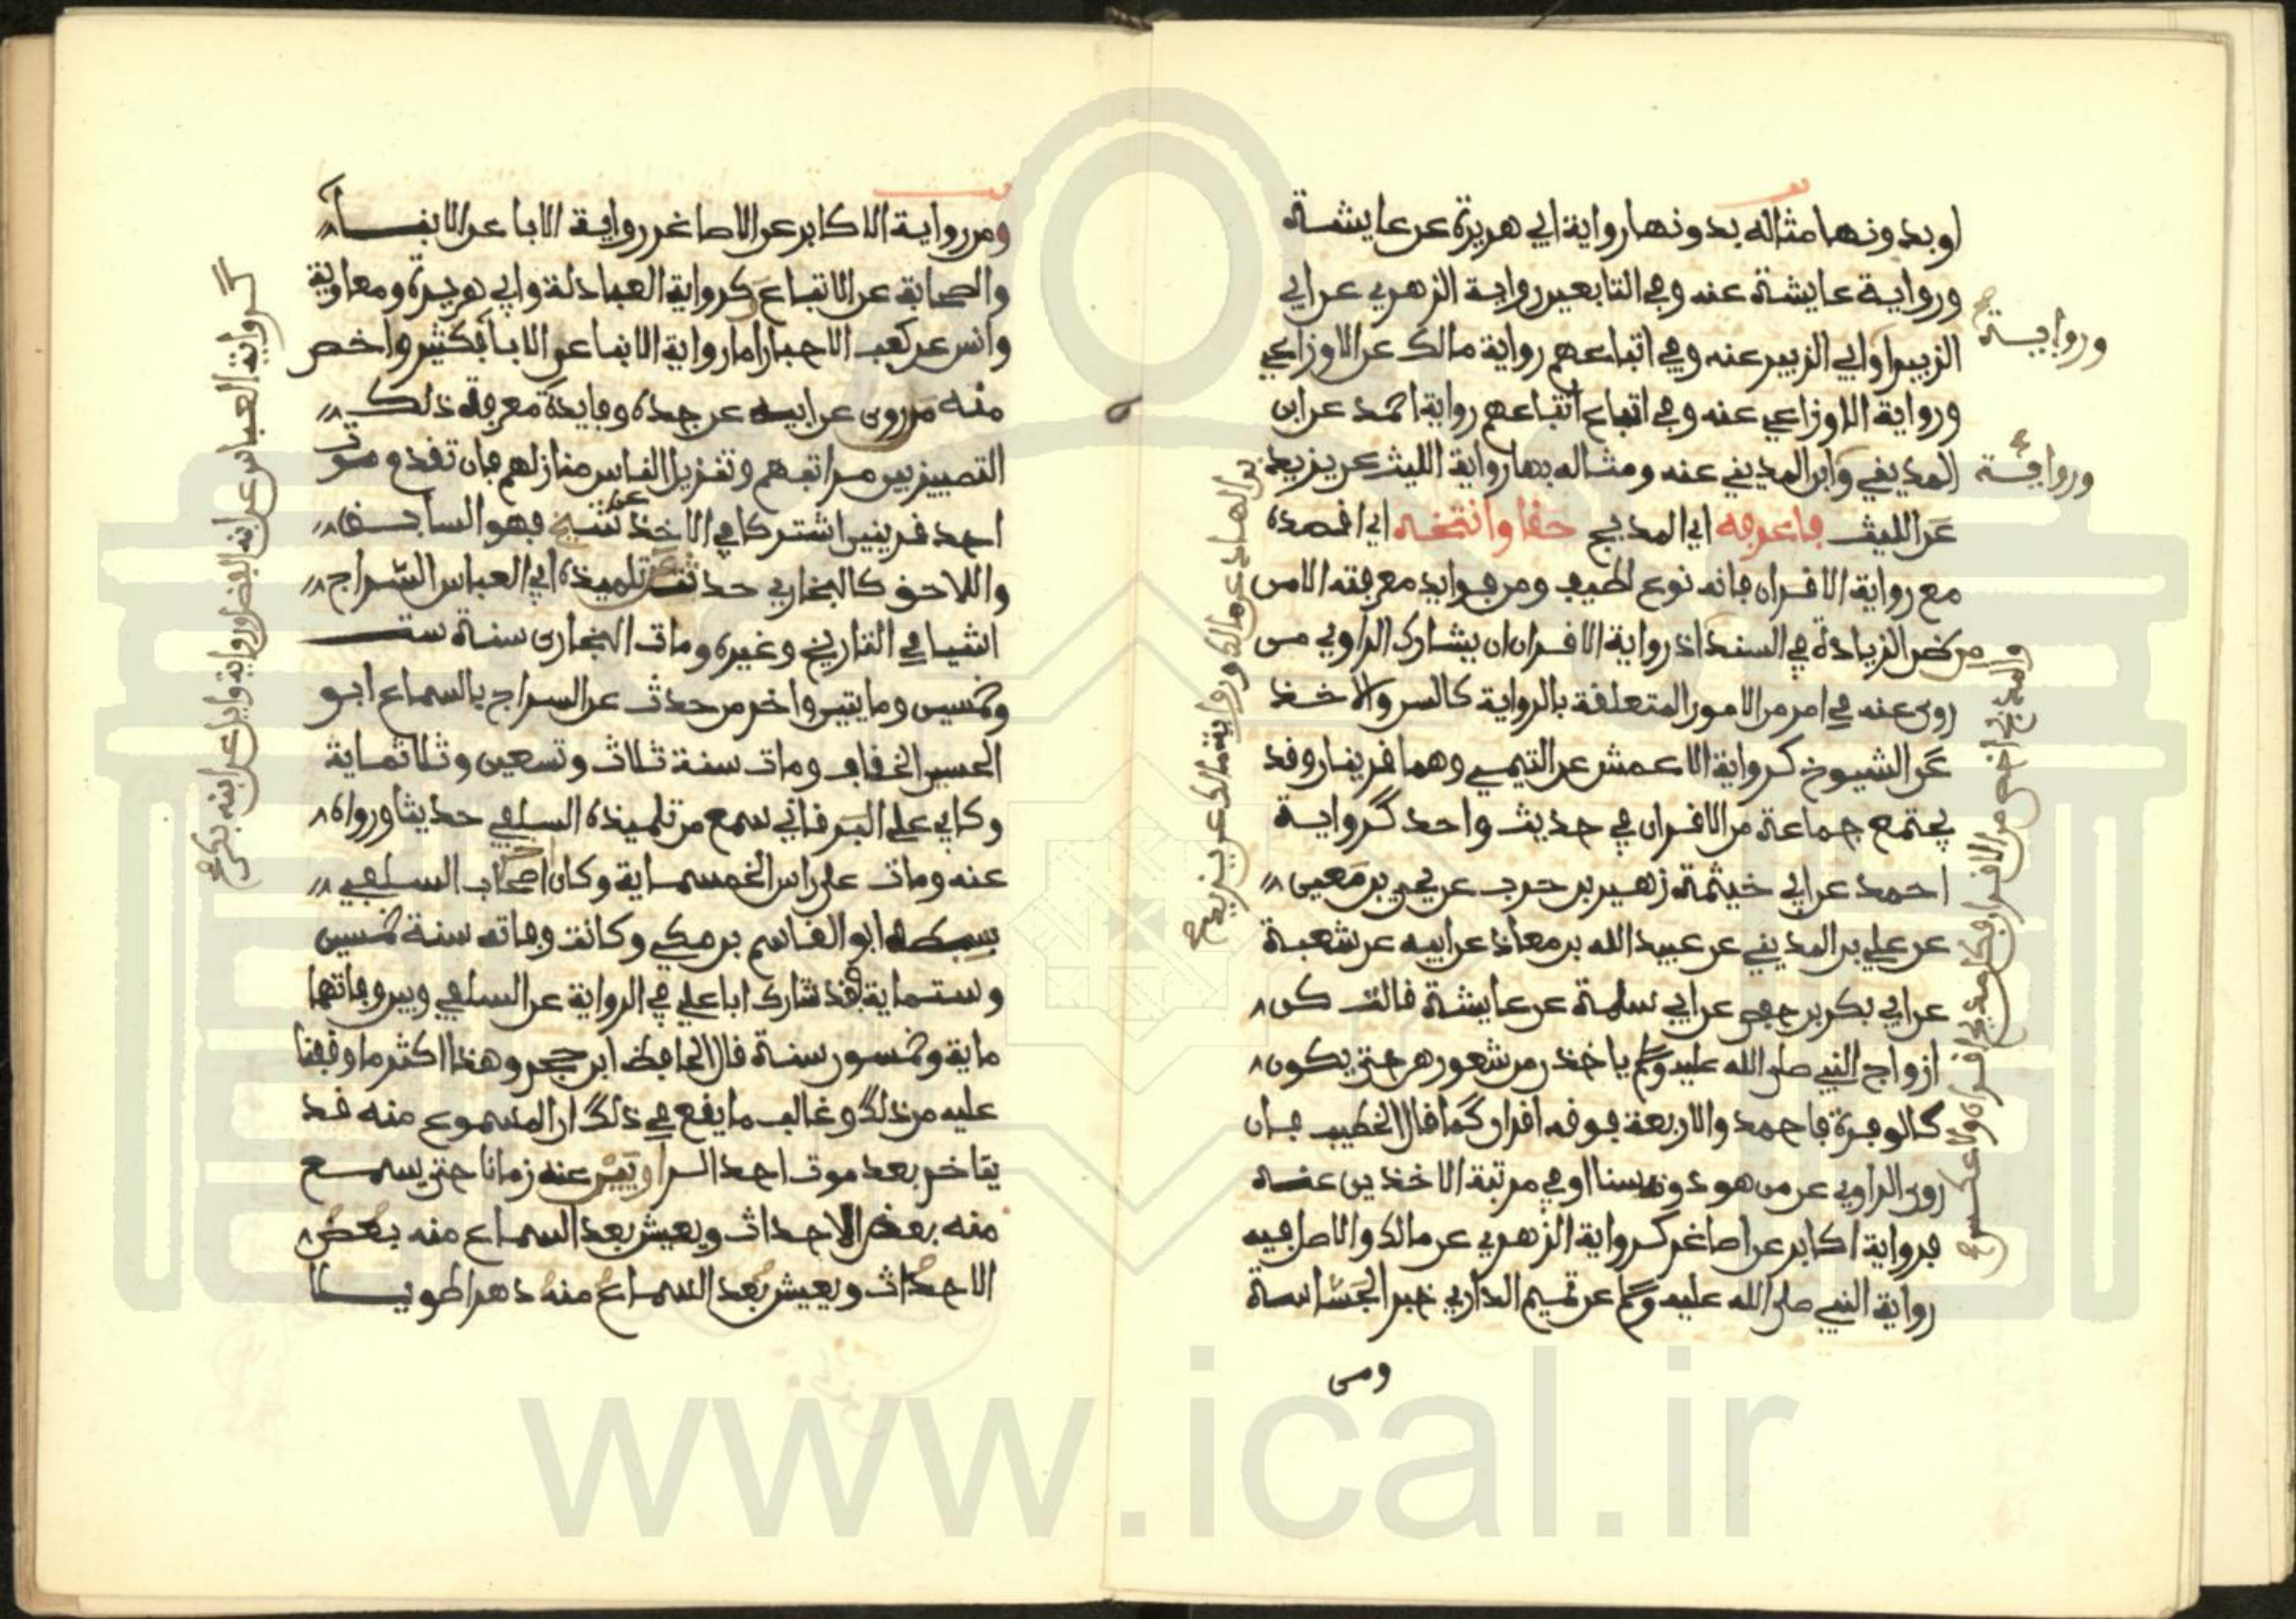 او بدونها مثاله بدونها رواية ابي هريرة عن عايشة
ورواية عايشة عنه وفي التابعين رواية الزهري عن ابي
الزبير وابي الزبير عنه وفي اتباعهم رواية مالك عن الاوزاعي
ورواية الاوزاعي عنه وفي اتباع اتباعهم رواية احمد عن ابن
المديني وابن المديني عنه ومثاله بها رواية الليث عن يزيد
عن الليث فاعرفه اي المدبج حقا وانتخه اي اقصده
مع رواية الاقران فانه نوع لطيف ومن فوايد معرفته الامن
من ظن الزيادة في السند اذ رواية الاقران ان يشارك الراوي من
روى عنه في امر من الامور المتعلقة بالرواية كالسن والاخذ
عن الشيوخ كرواية الاعمش عن التيمي وهما قرينان وقد
يجتمع جماعة من الاقران في حديث واحد كرواية
احمد عن ابي خيثمة زهير بن حرب عن يحيى بن معين
عن علي بن المديني عن عبيد الله بن معاذ عن ابيه عن شعبة
عن ابي بكر بن حفص عن ابي سلمة عن عايشة قالت كن
ازواج النبي صلى الله عليه وسلم ياخذن من شعورهن حتى يكون
كالوفرة فاحمد والاربعة فوقه اقران كما قال الخطيب فان
روى الراوي عن من هو دونه سنا او في مرتبة الاخذين عنه
فرواية اكابر عن اصاغر كرواية الزهري عن مالك والاصل فيه
رواية النبي صلى الله عليه وسلم عن تميم الداري خبر الجساسة
ومن
ورواية
ورواية
والمدبج اخص من الاقران فكل مدبج اقران ولا عكس
بن الهاد عن مالك ورواية مالك عن يزيد
ومن رواية الاكابر عن الاصاغر رواية الابا عن الابنا
والصحابة عن الاتباع كرواية العبادلة وابي هريرة ومعاوية
وانس عن كعب الاحبار اما رواية الابنا عن الابا فكثير واخص
منه من روى عن ابيه عن جده وفايدة معرفة ذلك
التمييز بين مراتبهم وتنزيل الناس منازلهم فان تقدم موت
احد قرينين اشتركا في الاخذ عن شيخ فهو السابق
واللاحق كالبخاري حدث عن تلميذه ابي العباس السراج
اشيا في التاريخ وغيره ومات البخاري سنة ست
وخمسين ومايتين واخر من حدث عن السراج بالسماع ابو
الحسين الخفاف ومات سنة ثلاث وتسعين وثلاثماية
وكابي علي البرداني سمع من تلميذه السلفي حديثا ورواه
عنه ومات على راس الخمسماية وكان اصحاب السلفي
سبطه ابو القاسم بن مكي وكانت وفاته سنة خمسين
وستماية فقد شارك ابا علي في الرواية عن السلفي وبين وفاتهما
ماية وخمسون سنة قال الحافظ ابن حجر وهذا اكثر ما وقفنا
عليه من ذلك وغالب ما يقع في ذلك ان المسموع منه قد
يتاخر بعد موت احد الراويين عنه زمانا حتى يسمع
منه بعض الاحداث ويعيش بعد السماع منه بعض
الاحداث ويعيش بعد السماع منه دهرا طويلا
كرواية العباس عن ابنه الفضل ورواية وايل عن ابنه بكر